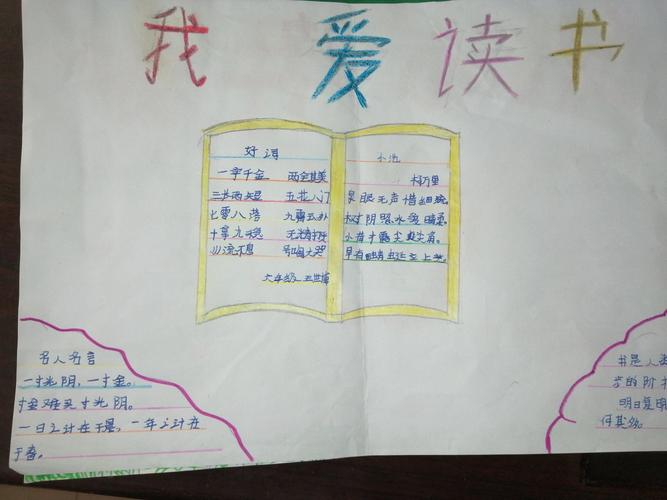 我爱读书
好词
一字千金 两全其美
三长两短 五花八门
七零八落 九霄云外
十拿九稳 无精打采
川流不息 号啕大哭
六年级
小池
杨万里
泉眼无声惜细流。
树阴照水爱晴柔。
小荷才露尖尖角。
早有蜻蜓立上头。
名人名言
一寸光阴,一寸金。
寸金难买寸光阴。
一日之计在于晨,一年之计在
于春。
书是人类
步的阶
明日复明
何其多